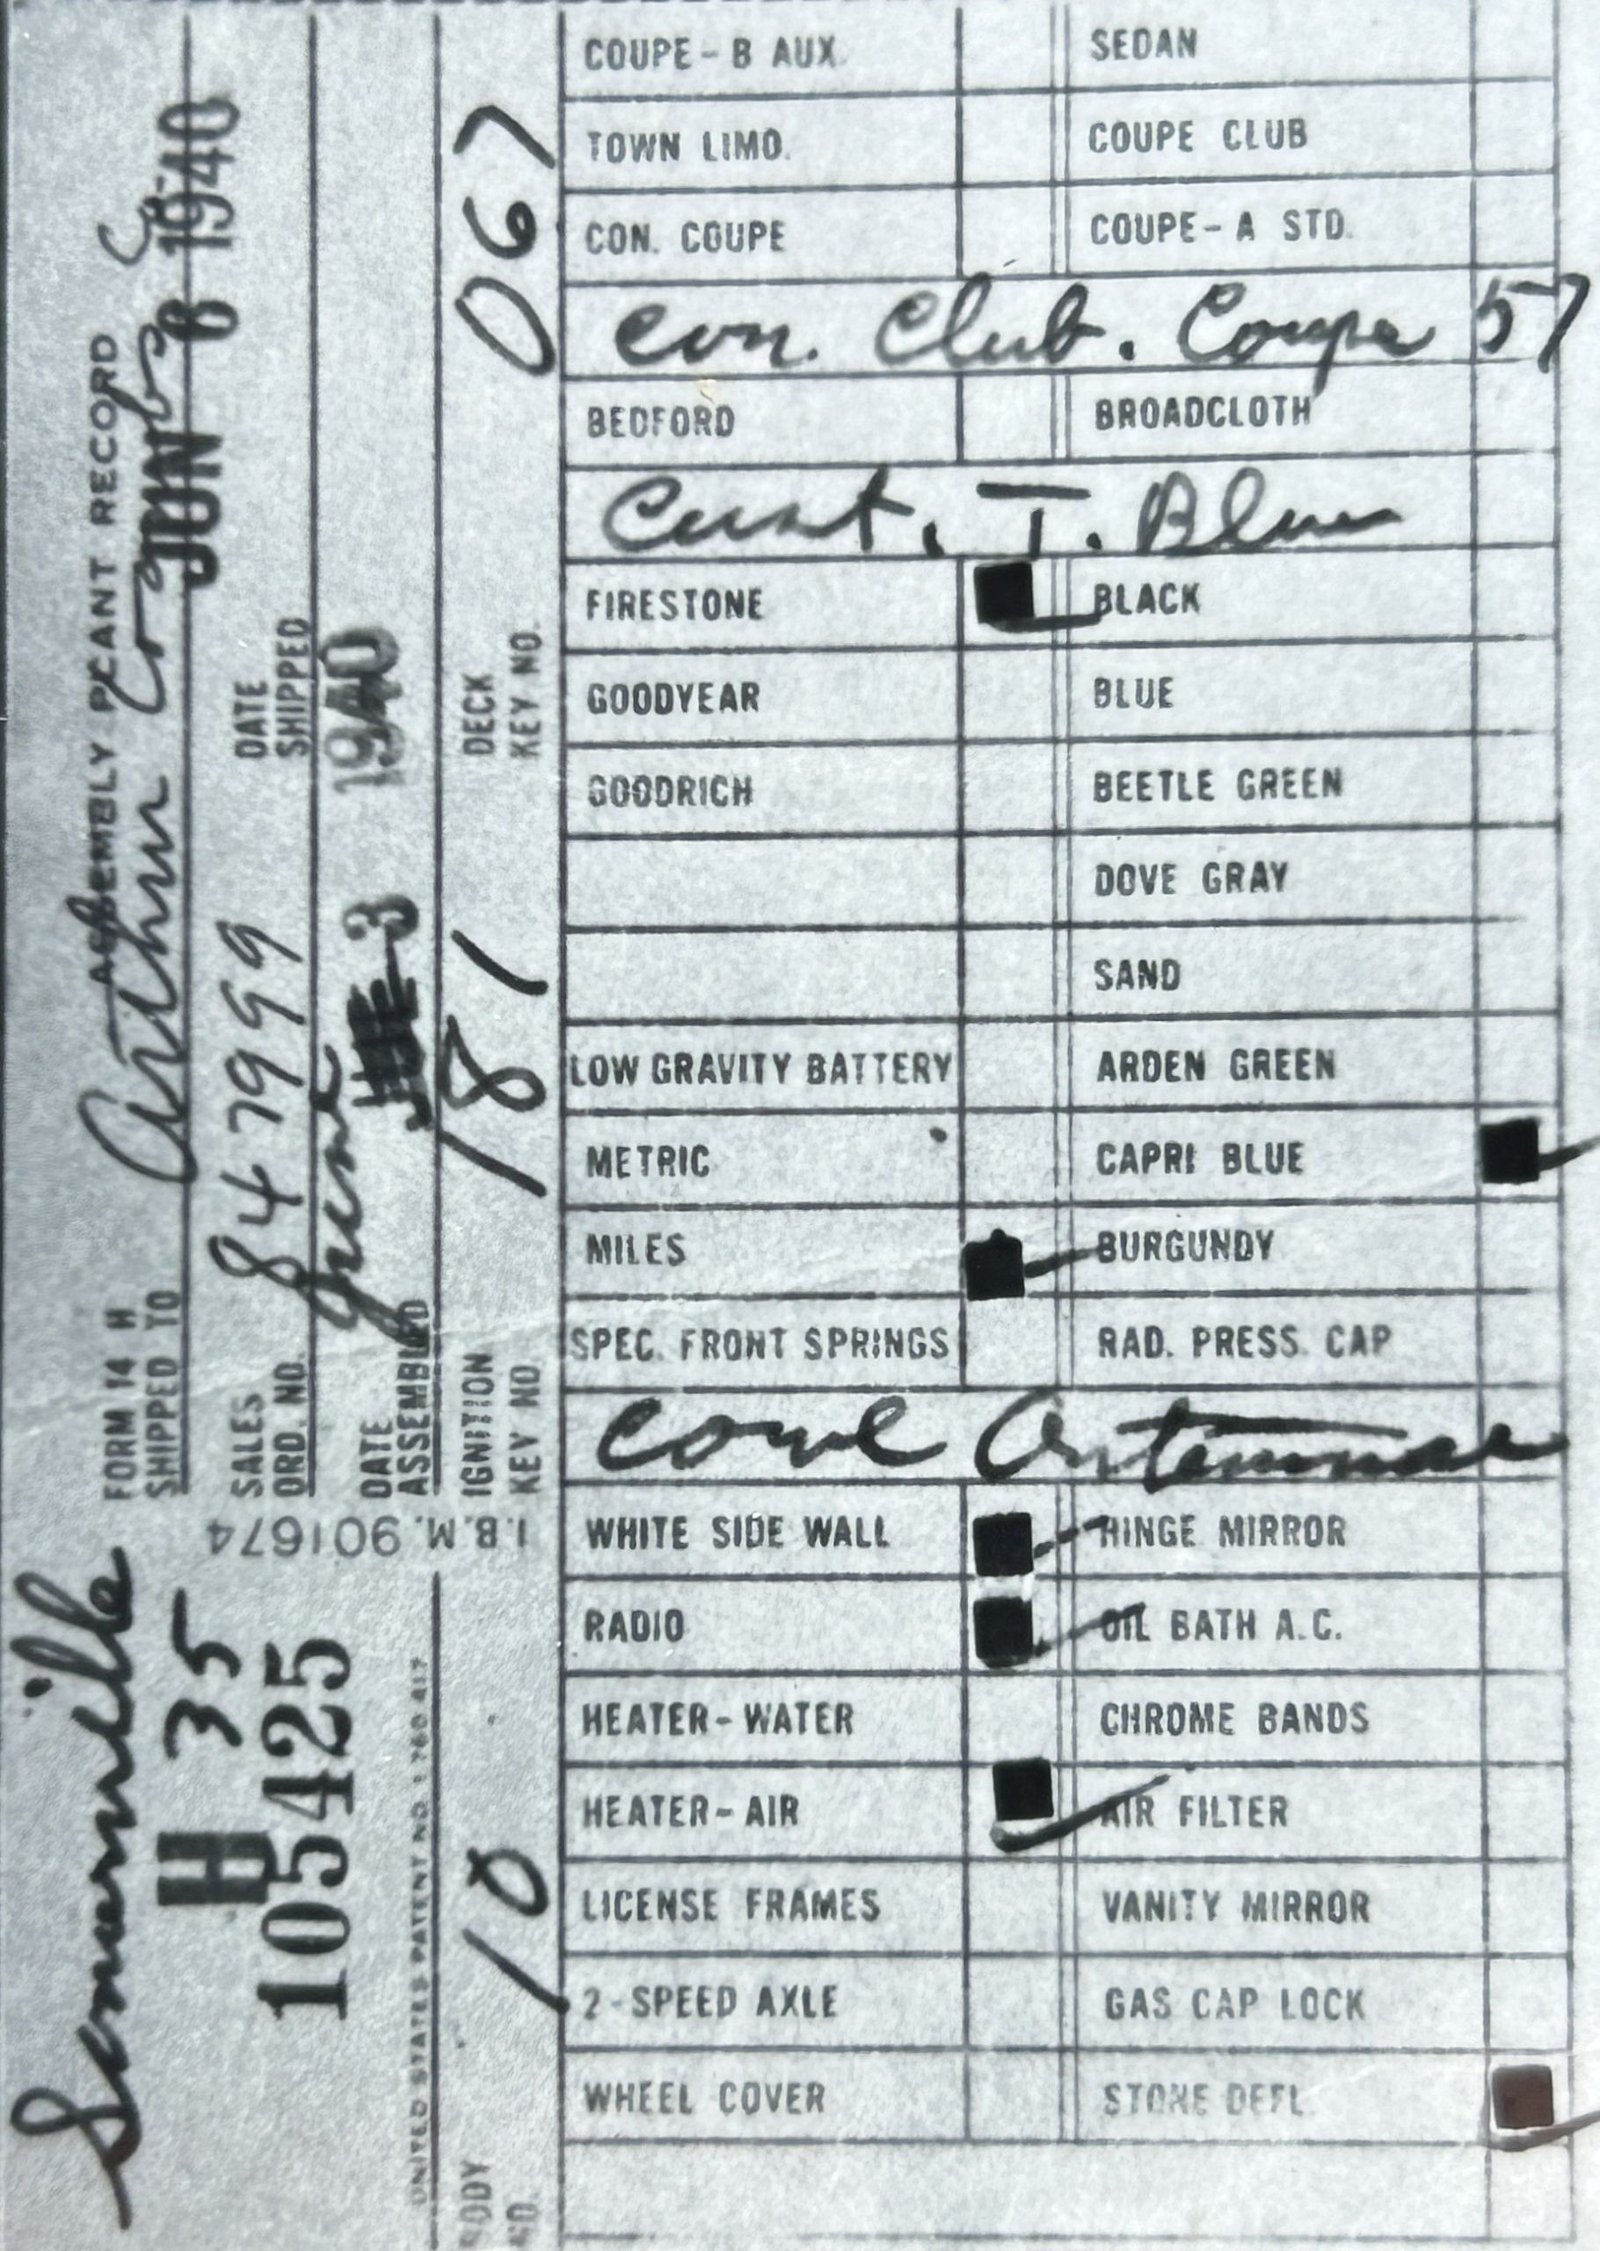 Somerville
H 35
105425
UNITED STATES PATENT NO.
I.B.M. 901674
FORM 14 H
ASSEMBLY PLANT RECORD
SHIPPED TO
Arthur
SALES ORD. NO.
847999
DATE SHIPPED
JUN 6 1940
DATE ASSEMBLED
June 3 1940
BODY NO.
10
IGNITION KEY NO.
181
DECK KEY NO.
067
COUPE-B AUX. SEDAN
TOWN LIMO. COUPE CLUB
CON. COUPE COUPE-A STD.
Con. Club. Coupe 57
BEDFORD BROADCLOTH
Cust. T. Blue
FIRESTONE BLACK
GOODYEAR BLUE
GOODRICH BEETLE GREEN
DOVE GRAY
SAND
LOW GRAVITY BATTERY ARDEN GREEN
METRIC CAPRI BLUE
MILES BURGUNDY
SPEC. FRONT SPRINGS RAD. PRESS. CAP
Cowl Antennae
WHITE SIDE WALL HINGE MIRROR
RADIO OIL BATH A.C.
HEATER-WATER CHROME BANDS
HEATER-AIR AIR FILTER
LICENSE FRAMES VANITY MIRROR
2-SPEED AXLE GAS CAP LOCK
WHEEL COVER STONE DEFL.